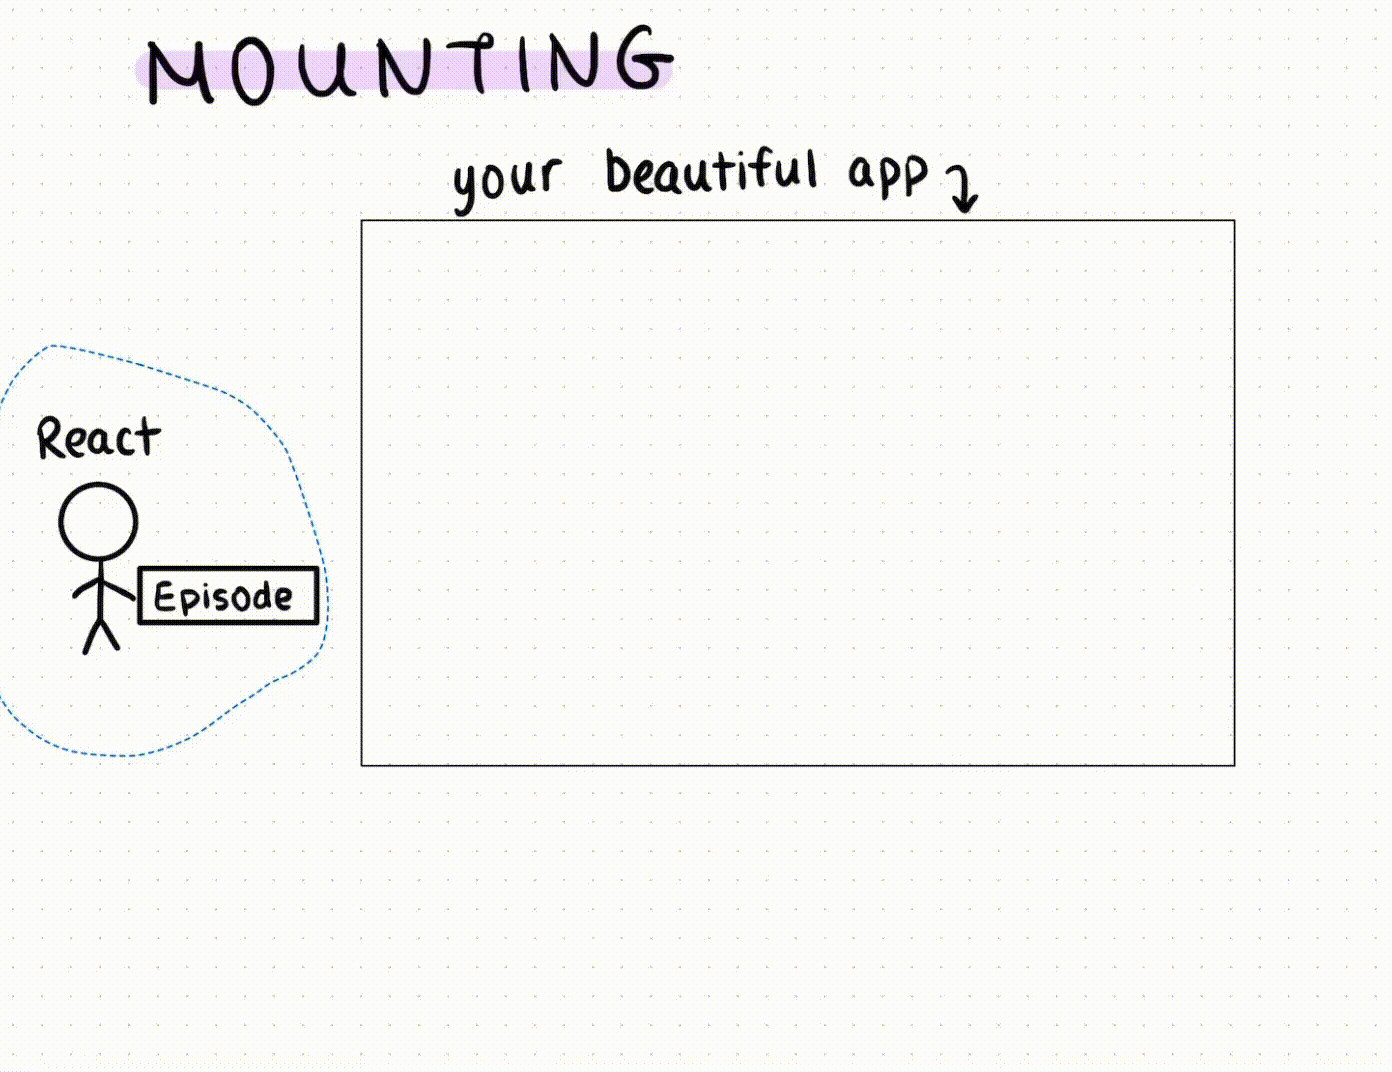 MOUNTING
your beautiful app
React
Episode